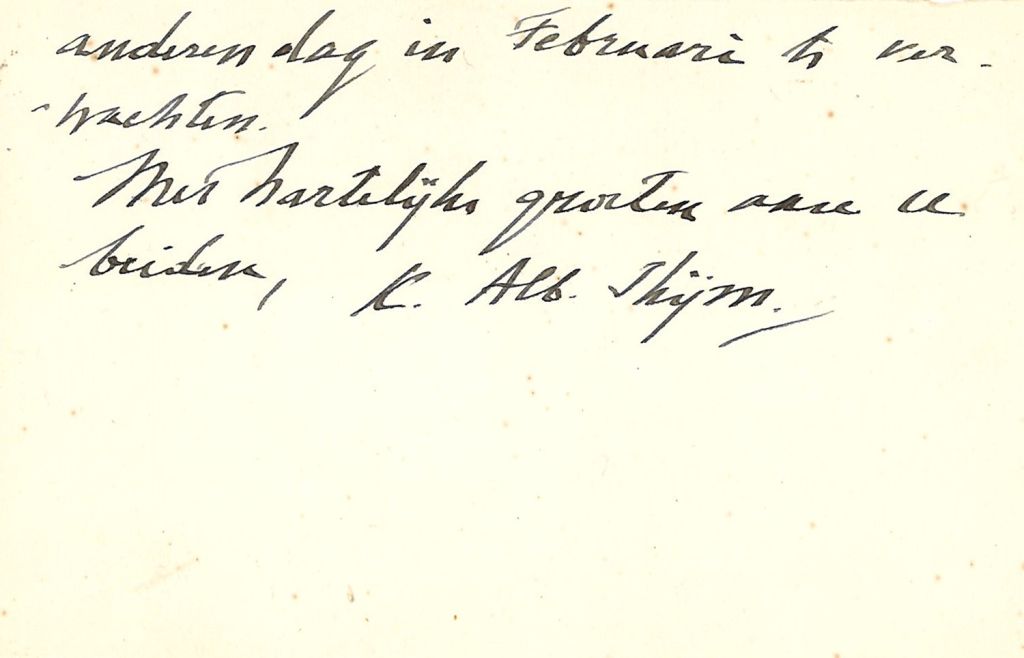 anderen dag in Februari te ver-
-wachten.
Met hartelijke groeten aan u
beiden, K. Alb. Thijm.